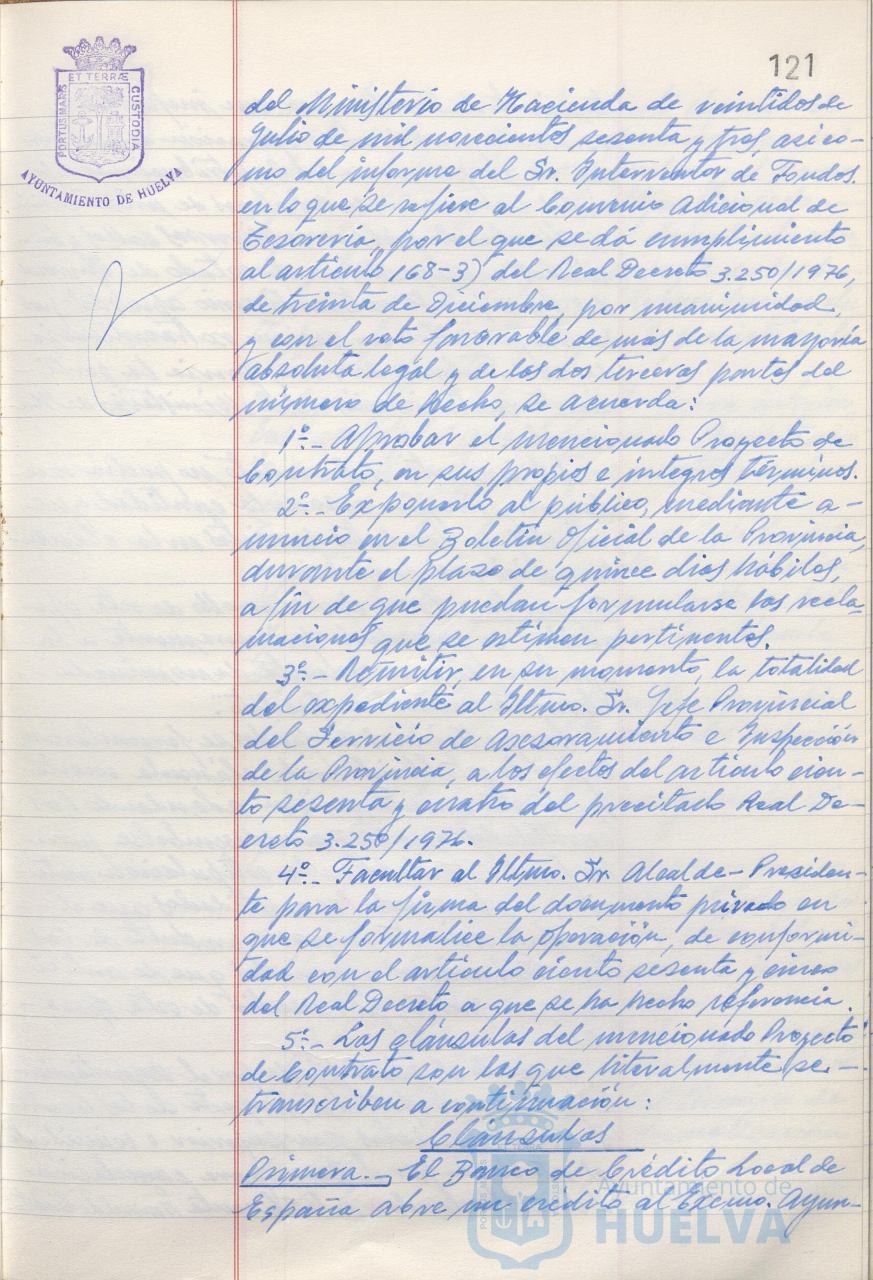 121
ET TERRÆ
PORTUS MARIS
CUSTODIA
AYUNTAMIENTO DE HUELVA
del Ministerio de Hacienda de veintidos de
Julio de mil novecientos sesenta y tres, asi co-
mo del informe del Sr. Interventor de Fondos.
en lo que se refiere al Convenio Adicional de
Tesorería, por el que se dá cumplimiento
al artículo 168-3) del Real Decreto 3.250/1976,
de treinta de Diciembre, por unanimidad,
y con el voto favorable de más de la mayoría
absoluta legal y de las dos terceras partes del
número de hecho, se acuerda:
1º.- Aprobar el mencionado Proyecto de
Contrato, en sus propios e integros términos.
2º.- Exponerlo al público, mediante a-
nuncio en el Boletín Oficial de la Provincia,
durante el plazo de quince dias hábiles,
a fin de que puedan formularse las recla-
maciones que se estimen pertinentes.
3º.- Remitir, en su momento, la totalidad
del expediente al Iltmo. Sr. Jefe Provincial
del Servicio de Asesoramiento e Inspección
de la Provincia, a los efectos del articulo cien-
to sesenta y cuatro del precitado Real De-
creto 3.250/1976.
4º.- Facultar al Iltmo. Sr. Alcalde-Presiden-
te para la firma del documento privado en
que se formalice la operación, de conformi-
dad con el artículo ciento sesenta y cinco
del Real Decreto a que se ha hecho referencia.
5º.- Las cláusulas del mencionado Proyecto
de Contrato son las que literalmente se-
transcriben a continuación:
Cláusulas
Primera.- El Banco de Crédito Local de
España abre un crédito al Excmo. Ayun-
Ayuntamiento de
HUELVA